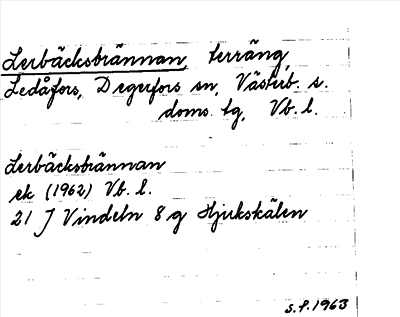 Lerbäcksbrännan, terräng,
Ledåfors, Degerfors sn, Västerb. s.
doms. tg, Vb. l.
Lerbäcksbrännan
ek (1962) Vb. l.
21 J Vindeln 8 g Hjukskälen
S.F. 1963